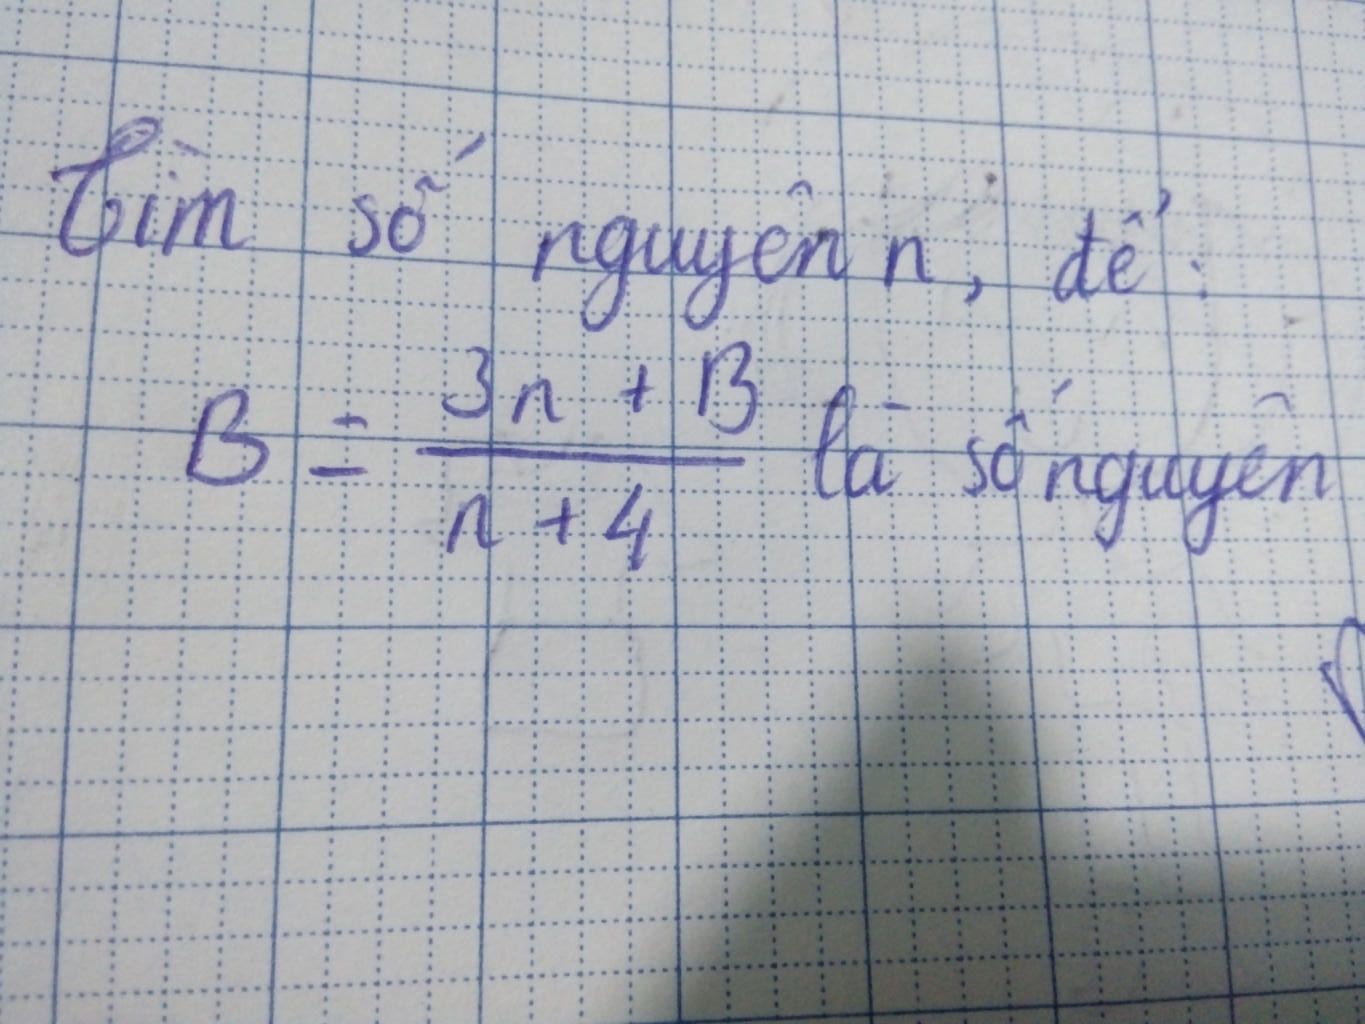 Tìm số nguyên n, để:
B = \frac{3n + 13}{n + 4} là số nguyên